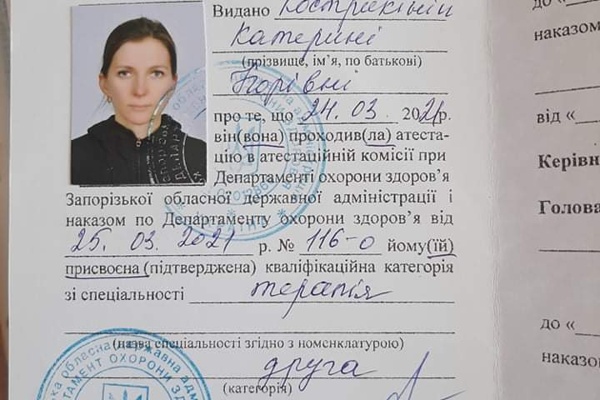 Видано Кострикіній
Катерині
(прізвище, ім'я, по батькові)
Ігорівні
про те, що 24.03. 2021р.
він(вона) проходив(ла) атеста-
цію в атестаційній комісії при
Департаменті охорони здоров'я
Запорізької обласної державної адміністрації і
наказом по Департаменту охорони здоров'я від
25. 03. 2021 р. № 116-о йому(їй)
присвоєна (підтверджена) кваліфікаційна категорія
зі спеціальності терапія
(назва спеціальності згідно з номенклатурою)
друга
(категорія)
до «
наказом
від «
Керівн
Голова
до «
наказом